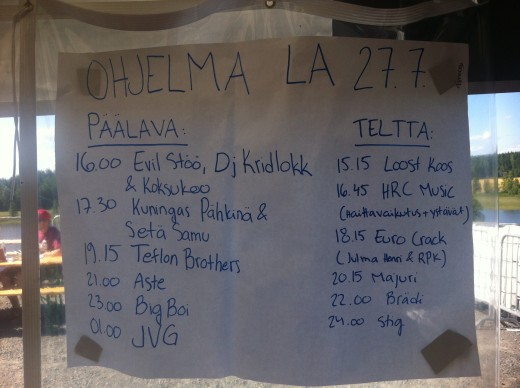 OHJELMA LA 27.7.
PÄÄLAVA:
16.00 Evil Stöö, Dj Kridlokk
& Koksukoo
17.30 Kuningas Pähkinä &
Setä Samu
19.15 Teflon Brothers
21.00 Aste
23.00 Big Boi
01.00 JVG
TELTTA:
15.15 Loost Koos
16.45 HRC Music
(Haittavaikutus+ystävät)
18.15 Euro Crack
(Julma Henri & RPK)
20.15 Majuri
22.00 Brädi
24.00 Stig